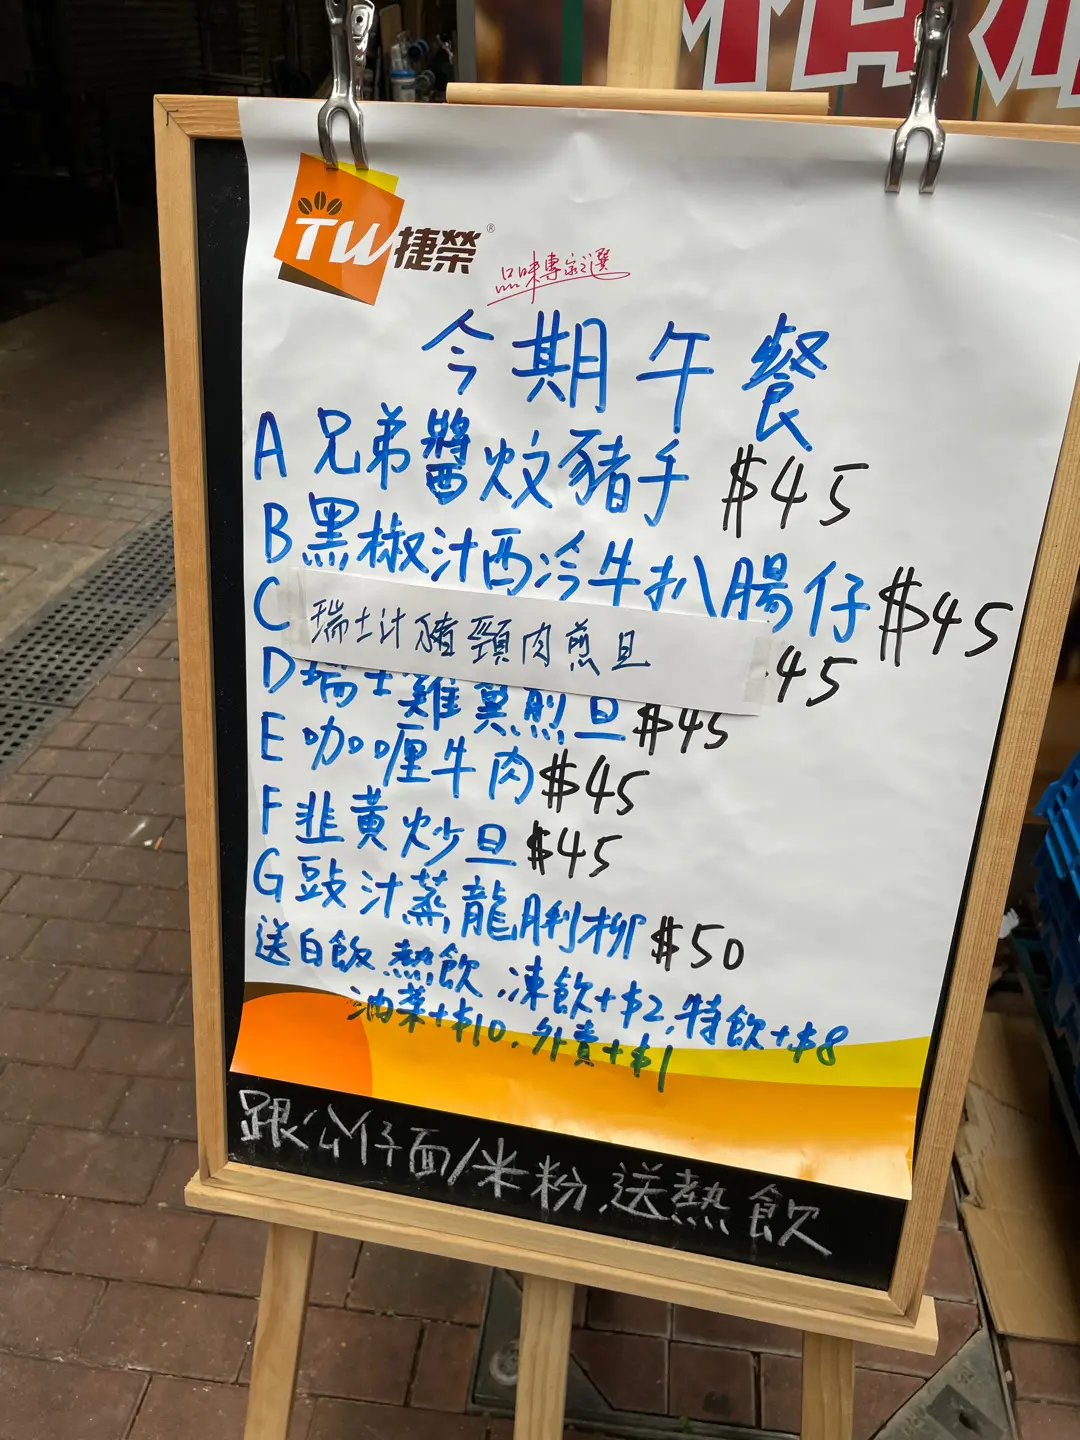 TW捷榮®
品味專家之選
今期午餐
A 兄弟醬炆豬手 $45
B 黑椒汁西冷牛扒腸仔 $45
C 瑞士汁豬頸肉煎旦 45
D 瑞士雞翼煎旦 $45
E 咖喱牛肉 $45
F 韭黃炒旦 $45
G 豉汁蒸龍脷柳 $50
送白飯 熱飲, 凍飲+$2, 特飲+$8
油菜+$10, 外賣+$1
跟公仔面/米粉, 送熱飲